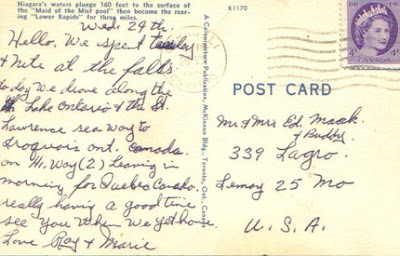 Niagara's waters plunge 160 feet to the surface of
the "Maid of the Mist pool" then become the roar-
ing "Lower Rapids" for three miles.
K1170
Wed. 29th.
Hello. We spent tuesday
& nite at the falls
today we drove along the
Lake Ontario & the St.
Lawrence sea way to
Iroquois ont. Canada.
on Hi. Way (2) Leaving in
morning for Quebec Canada.
really having a good time
see you when we get home.
Love Ray & Marie
A Colourpicture Publication, McKinnon Bldg., Toronto, Ont., Canada
POST CARD
Mr & Mrs Ed. Maak
& Buddy
339 Lagro.
Lemay 25 Mo
U.S.A.
4¢ CANADA 4¢